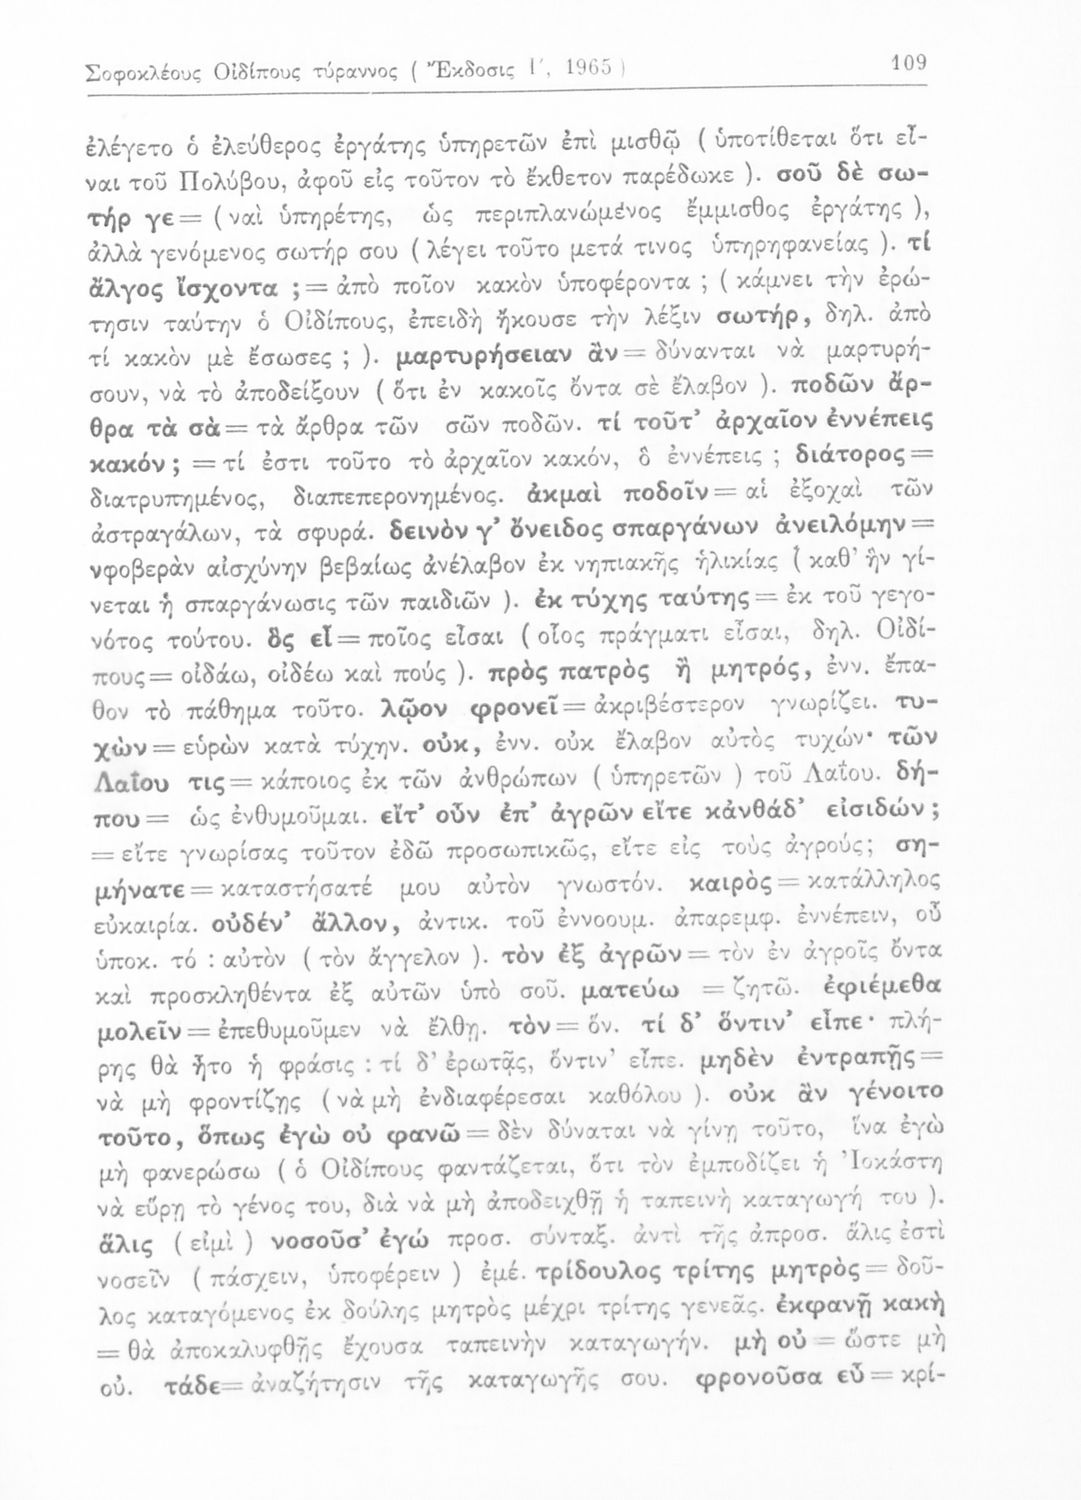 Σοφοκλέους Οἰδίπους τύραννος ( Ἔκδοσις Γ΄, 1965 )
109
ἐλέγετο ὁ ἐλεύθερος ἐργάτης ὑπηρετῶν ἐπὶ μισθῷ ( ὑποτίθεται ὅτι εἶ-
ναι τοῦ Πολύβου, ἀφοῦ εἰς τοῦτον τὸ ἔκθετον παρέδωκε ). σοῦ δὲ σω-
τήρ γε = ( ναὶ ὑπηρέτης, ὡς περιπλανώμενος ἔμμισθος ἐργάτης ),
ἀλλὰ γενόμενος σωτήρ σου ( λέγει τοῦτο μετά τινος ὑπηρηφανείας ). τί
ἄλγος ἴσχοντα ; = ἀπὸ ποῖον κακὸν ὑποφέροντα ; ( κάμνει τὴν ἐρώ-
τησιν ταύτην ὁ Οἰδίπους, ἐπειδὴ ἤκουσε τὴν λέξιν σωτήρ, δηλ. ἀπὸ
τί κακὸν μὲ ἔσωσες ; ). μαρτυρήσειαν ἂν = δύνανται νὰ μαρτυρή-
σουν, νὰ τὸ ἀποδείξουν ( ὅτι ἐν κακοῖς ὄντα σὲ ἔλαβον ). ποδῶν ἄρ-
θρα τὰ σὰ = τὰ ἄρθρα τῶν σῶν ποδῶν. τί τοῦτ' ἀρχαῖον ἐννέπεις
κακόν ; = τί ἐστι τοῦτο τὸ ἀρχαῖον κακόν, ὃ ἐννέπεις ; διάτορος =
διατρυπημένος, διαπεπερονημένος. ἀκμαὶ ποδοῖν = αἱ ἐξοχαὶ τῶν
ἀστραγάλων, τὰ σφυρά. δεινὸν γ' ὄνειδος σπαργάνων ἀνειλόμην =
νφοβερὰν αἰσχύνην βεβαίως ἀνέλαβον ἐκ νηπιακῆς ἡλικίας ( καθ' ἣν γί-
νεται ἡ σπαργάνωσις τῶν παιδιῶν ). ἐκ τύχης ταύτης = ἐκ τοῦ γεγο-
νότος τούτου. ὃς εἶ = ποῖος εἶσαι ( οἷος πράγματι εἶσαι, δηλ. Οἰδί-
πους = οἰδάω, οἰδέω καὶ πούς ). πρὸς πατρὸς ἢ μητρός, ἐνν. ἔπα-
θον τὸ πάθημα τοῦτο. λῷον φρονεῖ = ἀκριβέστερον γνωρίζει. τυ-
χὼν = εὑρὼν κατὰ τύχην. οὐκ, ἐνν. οὐκ ἔλαβον αὐτὸς τυχών· τῶν
Λαΐου τις = κάποιος ἐκ τῶν ἀνθρώπων ( ὑπηρετῶν ) τοῦ Λαΐου. δή-
που = ὡς ἐνθυμοῦμαι. εἴτ' οὖν ἐπ' ἀγρῶν εἴτε κἀνθάδ' εἰσιδών ;
= εἴτε γνωρίσας τοῦτον ἐδῶ προσωπικῶς, εἴτε εἰς τοὺς ἀγρούς; ση-
μήνατε = καταστήσατέ μου αὐτὸν γνωστόν. καιρὸς = κατάλληλος
εὐκαιρία. οὐδέν' ἄλλον, ἀντικ. τοῦ ἐννοουμ. ἀπαρεμφ. ἐννέπειν, οὗ
ὑποκ. τό : αὐτὸν ( τὸν ἄγγελον ). τὸν ἐξ ἀγρῶν = τὸν ἐν ἀγροῖς ὄντα
καὶ προσκληθέντα ἐξ αὐτῶν ὑπὸ σοῦ. ματεύω = ζητῶ. ἐφιέμεθα
μολεῖν = ἐπεθυμοῦμεν νὰ ἔλθῃ. τὸν = ὅν. τί δ' ὅντιν' εἶπε· πλή-
ρης θὰ ἦτο ἡ φράσις : τί δ' ἐρωτᾷς, ὅντιν' εἶπε. μηδὲν ἐντραπῇς =
νὰ μὴ φροντίζῃς ( νὰ μὴ ἐνδιαφέρεσαι καθόλου ). οὐκ ἂν γένοιτο
τοῦτο, ὅπως ἐγὼ οὐ φανῶ = δὲν δύναται νὰ γίνῃ τοῦτο, ἵνα ἐγὼ
μὴ φανερώσω ( ὁ Οἰδίπους φαντάζεται, ὅτι τὸν ἐμποδίζει ἡ Ἰοκάστη
νὰ εὕρῃ τὸ γένος του, διὰ νὰ μὴ ἀποδειχθῇ ἡ ταπεινὴ καταγωγή του ).
ἅλις ( εἰμὶ ) νοσοῦσ' ἐγώ προσ. σύνταξ. ἀντὶ τῆς ἀπροσ. ἅλις ἐστὶ
νοσεῖν ( πάσχειν, ὑποφέρειν ) ἐμέ. τρίδουλος τρίτης μητρὸς = δοῦ-
λος καταγόμενος ἐκ δούλης μητρὸς μέχρι τρίτης γενεᾶς. ἐκφανῇ κακὴ
= θὰ ἀποκαλυφθῇς ἔχουσα ταπεινὴν καταγωγήν. μὴ οὐ = ὥστε μὴ
οὐ. τάδε = ἀναζήτησιν τῆς καταγωγῆς σου. φρονοῦσα εὖ = κρί-